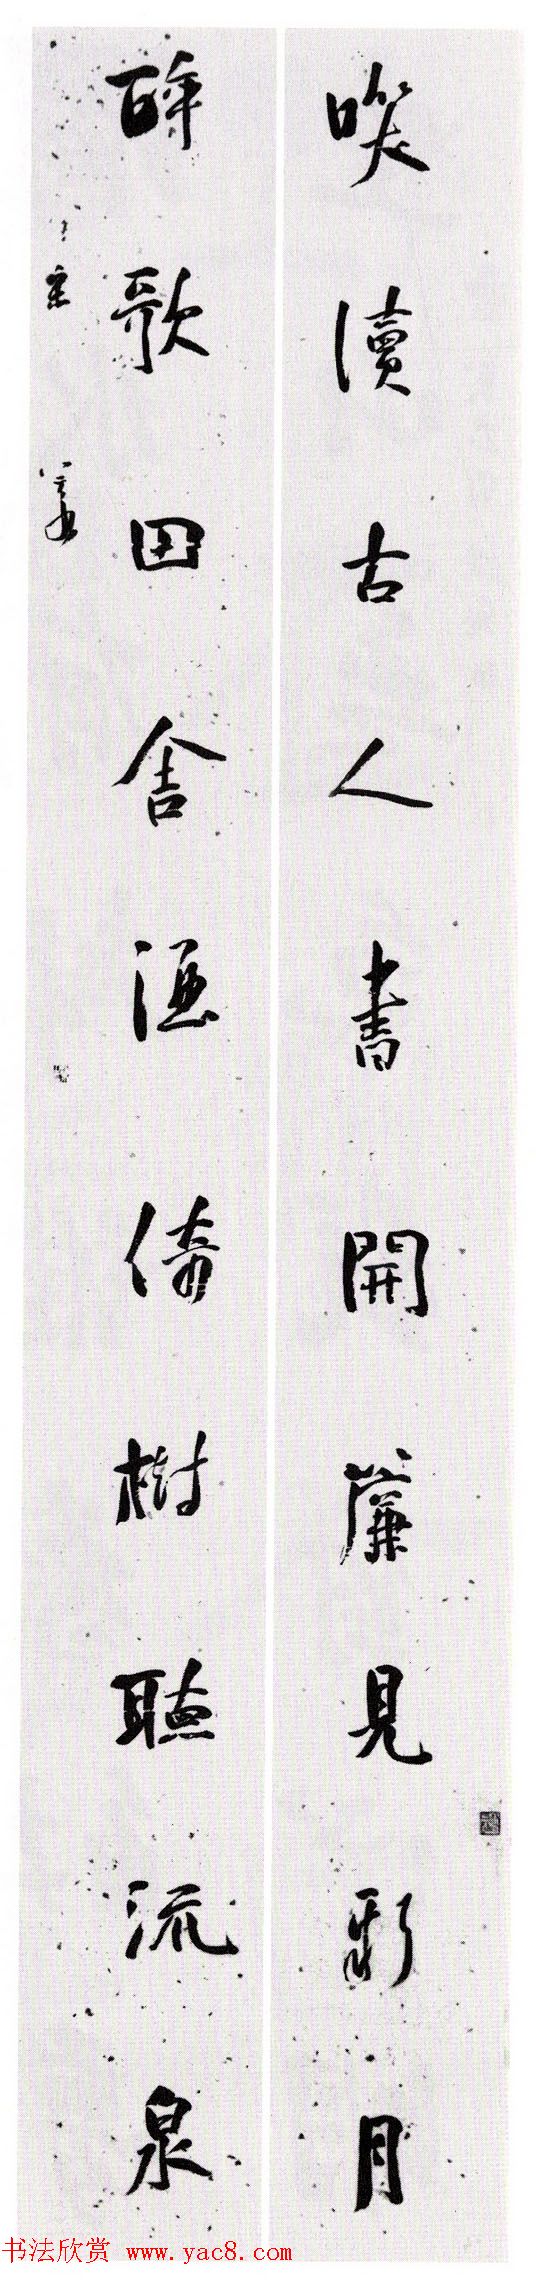 咲讀古人書開簾見新月
醉歌田舍酒倚樹聽流泉
书法欣赏 www.yac8.com